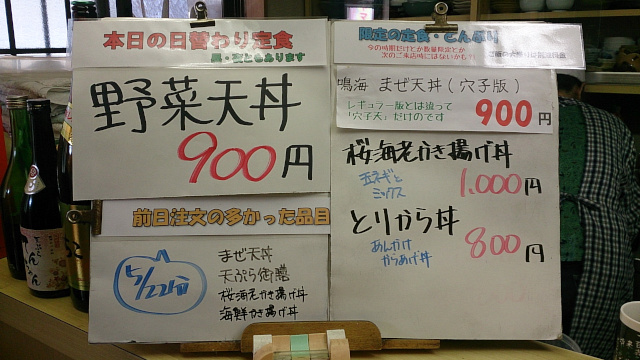 本日の日替わり定食
野菜天丼
900円
前日注文の多かった品目
5/22分
まぜ天丼
天ぷら御膳
桜海老かき揚げ丼
海鮮かき揚げ丼
限定の定食・どんぶり
今の時期だけとか数量限定とか
次のご来店時にはないかも?
鳴海 まぜ天丼(穴子版)
レギュラー版とは違って
「穴子天」だけのです
900円
桜海老かき揚げ丼
玉ネギと
ミックス
1,000円
とりから丼
あんかけ
からあげ丼
800円